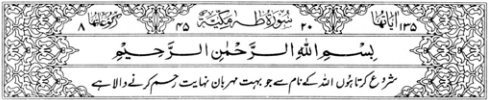 اٰیَاتُهَا ۱۳۵ ۲۰ سُوْرَةُ طٰهٰ مَكِّيَّةٌ ۴۵ رُكُوْعَاتُهَا ۸
بِسْمِ اللهِ الرَّحْمٰنِ الرَّحِيْمِ
شروع کرتا ہوں اللہ کے نام سے جو بہت مہربان نہایت رحم کرنے والا ہے